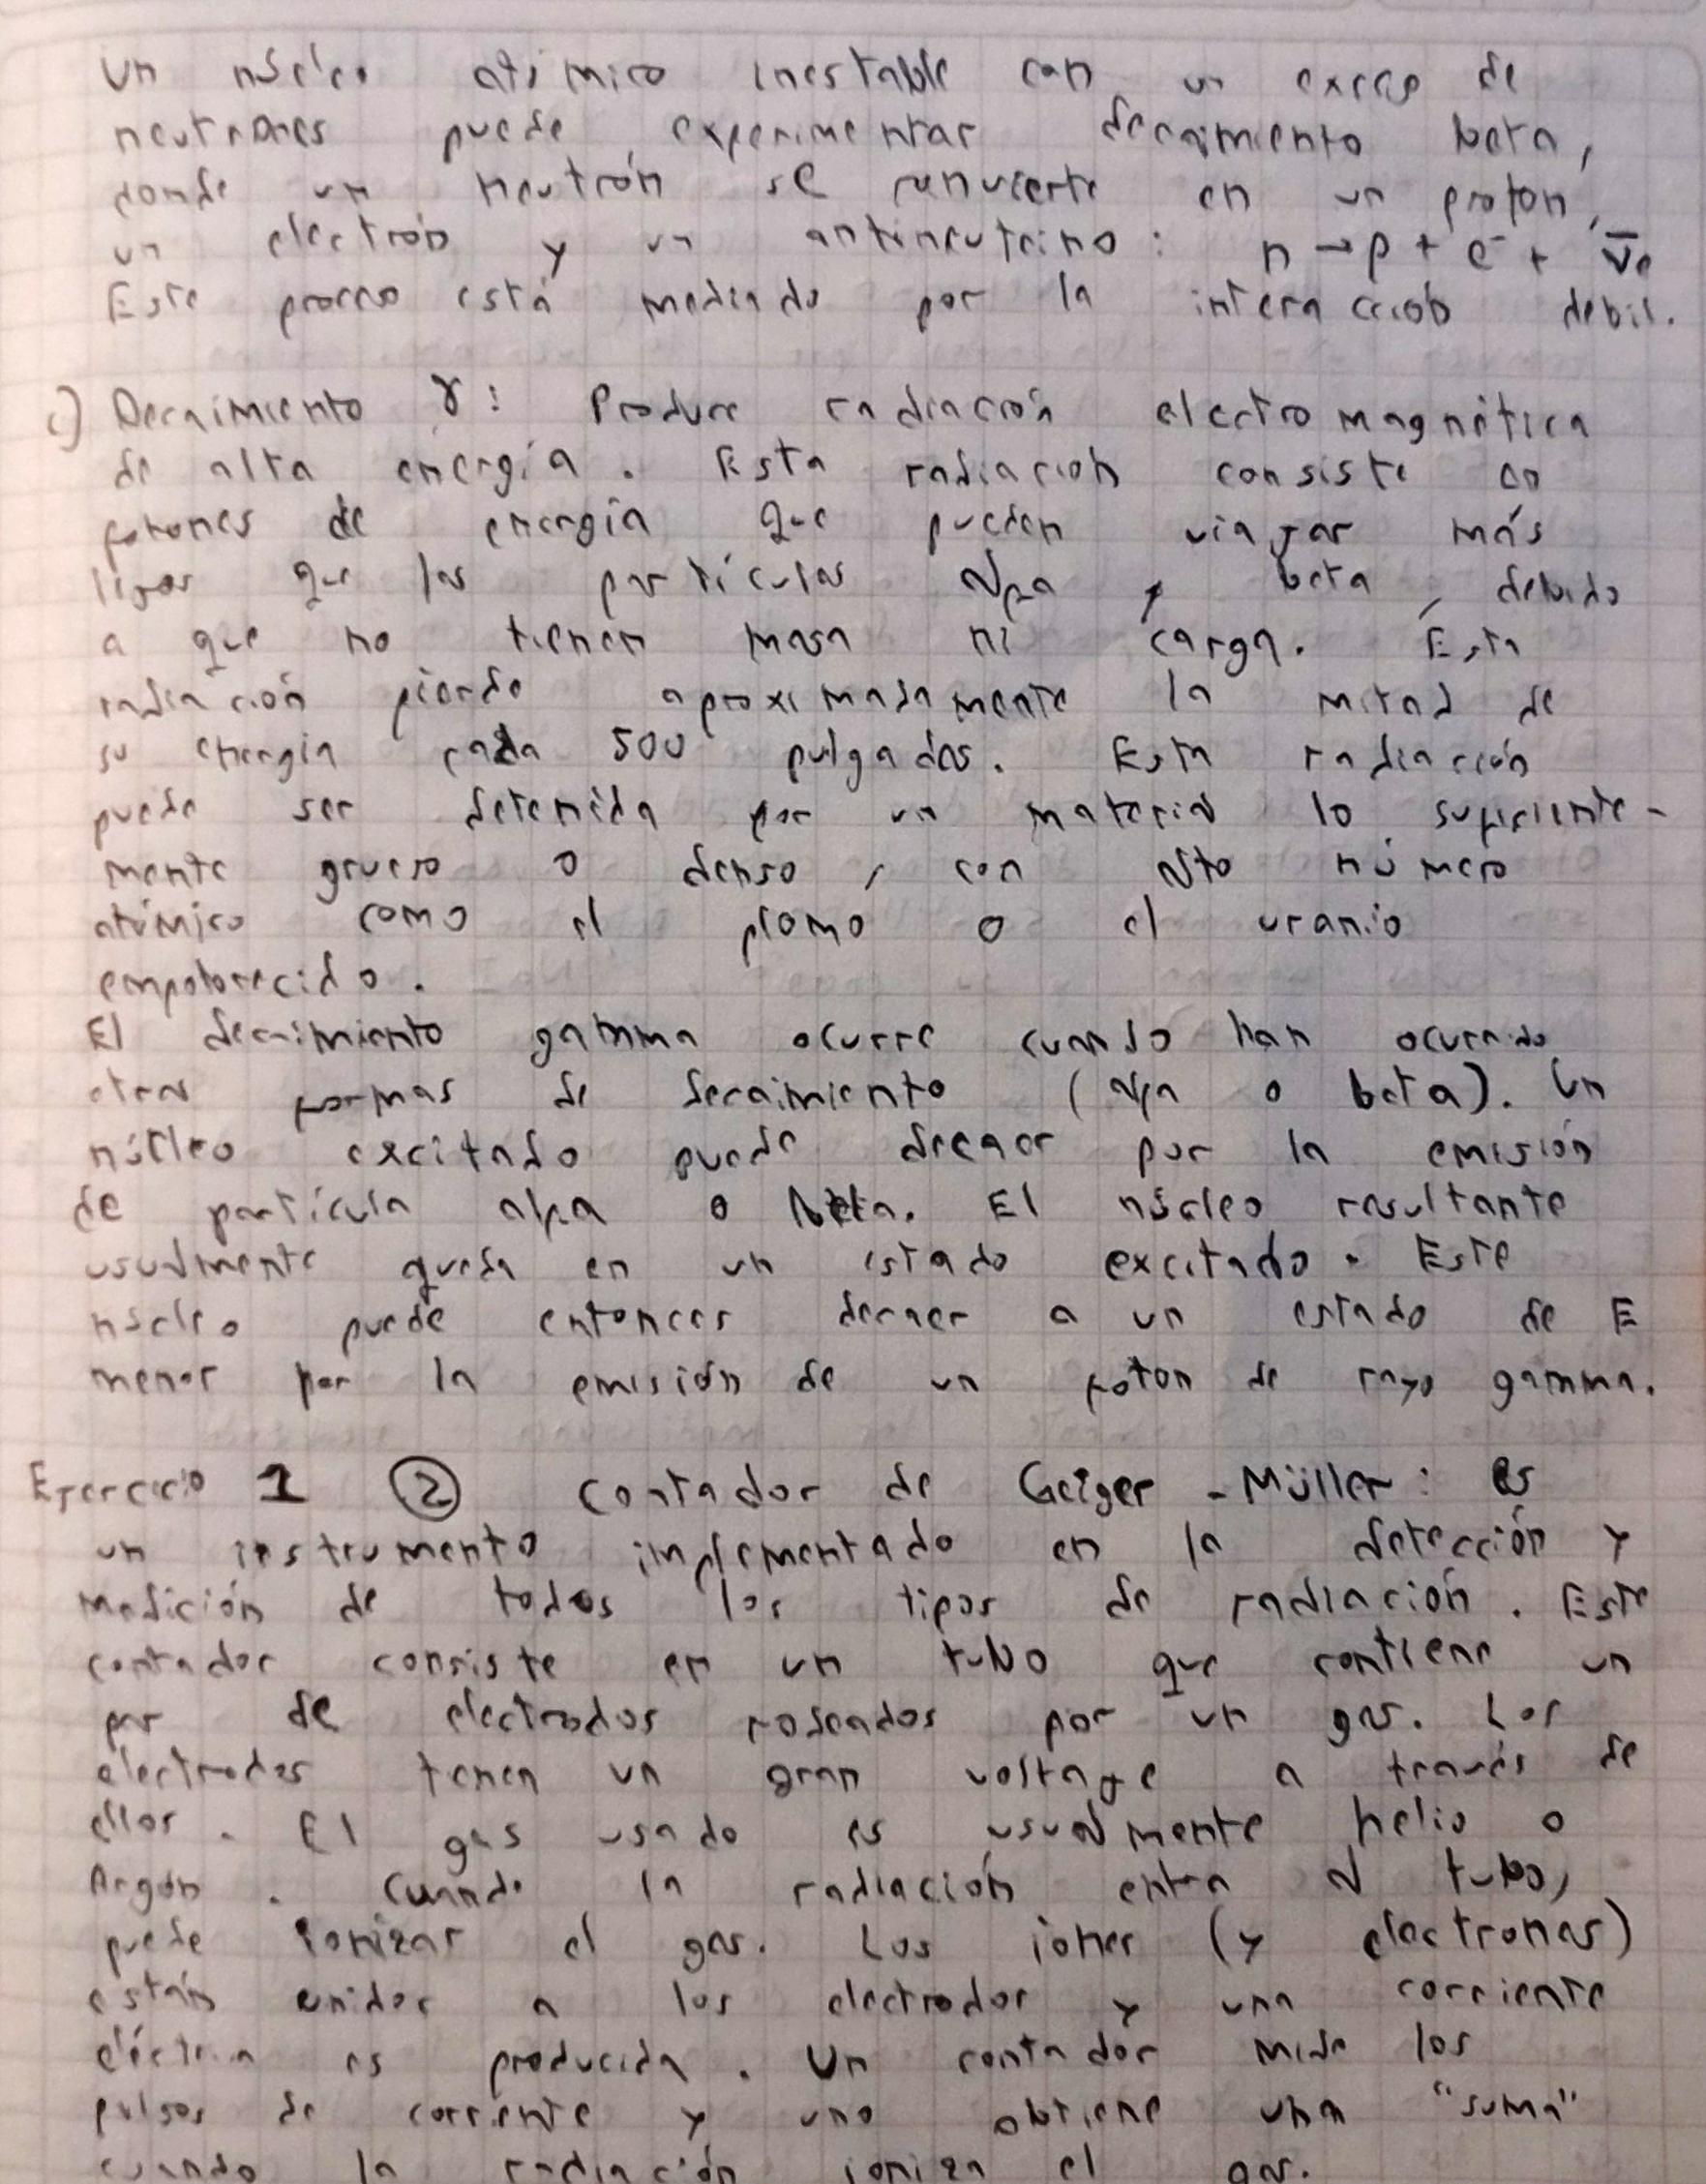 Un núcleo atómico inestable con un exceso de
neutrones puede experimentar decaimiento beta,
donde un neutrón se convierte en un proton,
un electrón y un antineutrino: n → p + e⁻ + ν̄e
Este proceso está mediado por la interacción debil.
c) Decaimiento γ: Produce radiación electromagnética
de alta energía. Esta radiacion consiste en
fotones de energía que pueden viajar más
lejos que las partículas alfa y beta, debido
a que no tienen masa ni carga. Esta
radiación pierde aproximadamente la mitad de
su energía cada 500 pulgadas. Esta radiación
puede ser detenida por un material lo suficiente-
mente grueso o denso, con alto número
atómico como el plomo o el uranio
empobrecido.
El decaimiento gamma ocurre cuando han ocurrido
otras formas de decaimiento (alfa o beta). Un
núcleo excitado puede decaer por la emisión
de partícula alfa o beta. El núcleo resultante
usualmente queda en un estado excitado. Este
núcleo puede entonces decaer a un estado de E
menor por la emisión de un foton de rayo gamma.
Ejercicio 1 ② Contador de Geiger-Müller: es
un instrumento implementado en la detección y
medición de todos los tipos de radiación. Este
contador consiste en un tubo que contiene un
par de electrodos rodeados por un gas. Los
electrodos tienen un gran voltaje a través de
ellos. El gas usado es usualmente helio o
Argón. Cuando la radiación entra al tubo,
puede ionizar el gas. Los iones (y electrones)
están unidos a los electrodos y una corriente
eléctrica es producida. Un contador mide los
pulsos de corriente y uno obtiene una "suma"
cuando la radiación ioniza el gas.